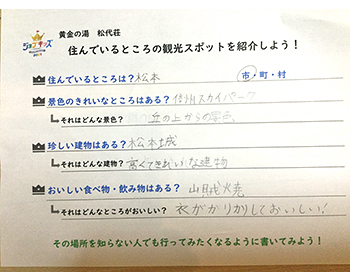 黄金の湯 松代荘
ジョブキッズ
住んでいるところの観光スポットを紹介しよう！
住んでいるところは？松本 市・町・村
景色のきれいなところはある？信州スカイパーク
それはどんな景色？ 丘の上からの景色
珍しい建物はある？松本城
それはどんな建物？ 高くてきれいな建物
おいしい食べ物・飲み物はある？ 山賊焼
それはどんなところがおいしい？ 衣がカリカリしておいしい！
その場所を知らない人でも行ってみたくなるように書いてみよう！